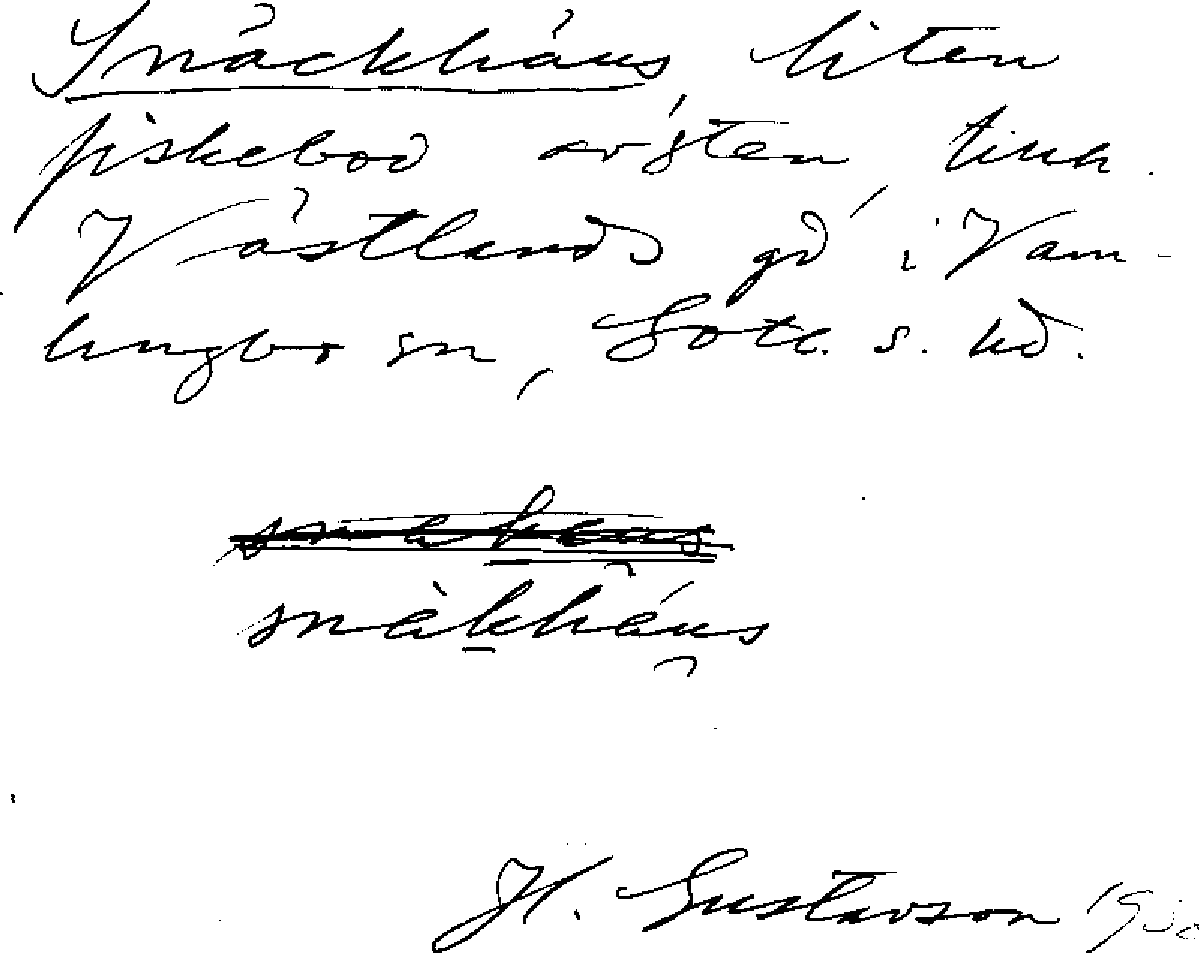 Snäckhäus, liten
fiskebod av sten, tillh.
Västlands gd i Vam-
lingbo sn, Gotl. s. hd.
snäkhäus
H. Gustavson